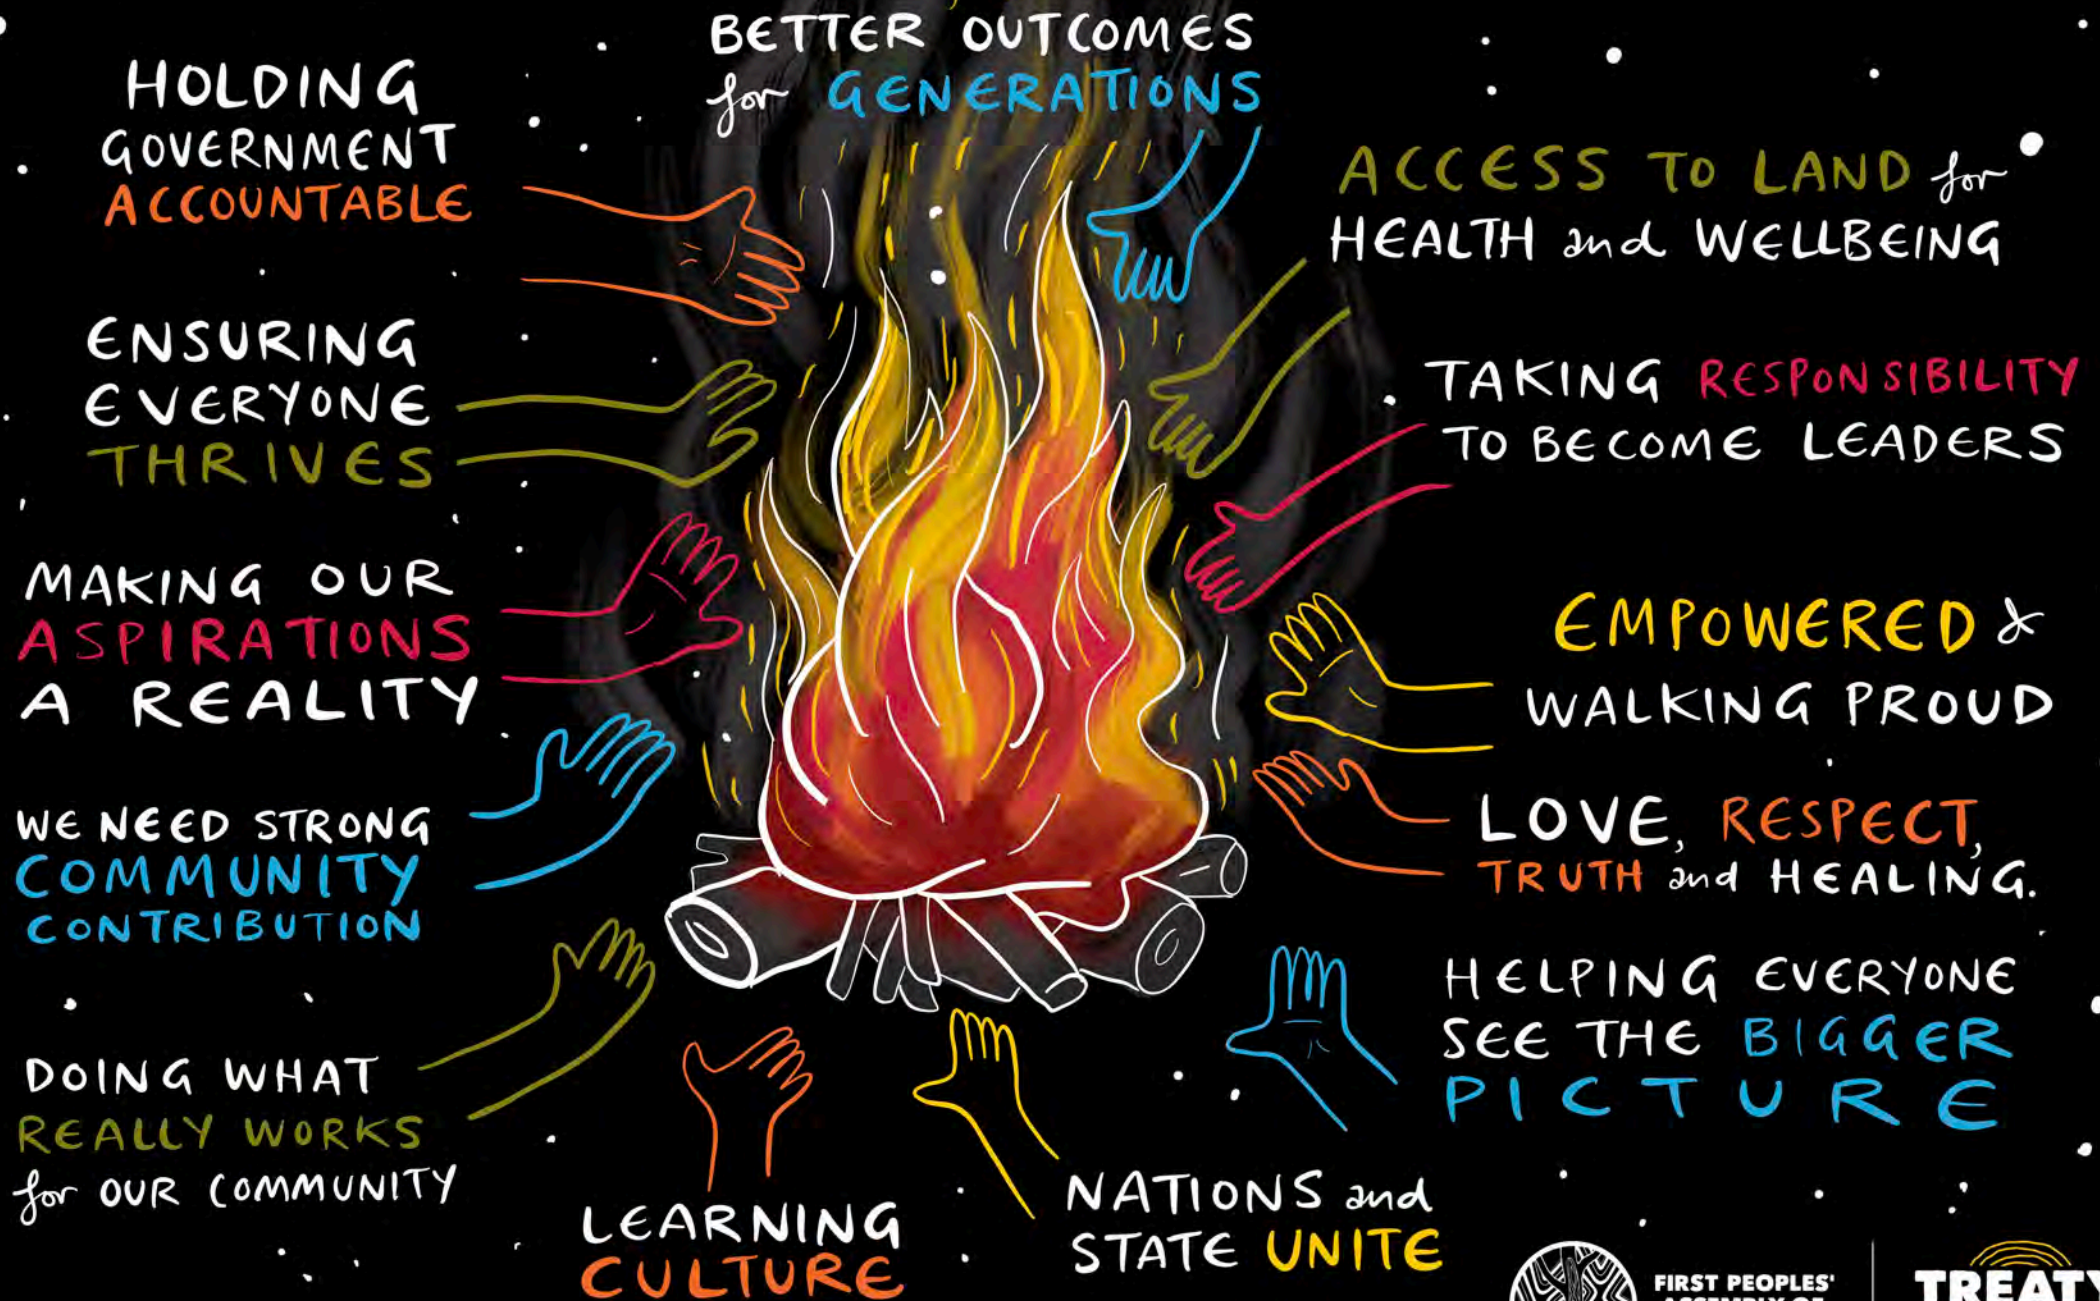 BETTER OUTCOMES
for GENERATIONS
HOLDING
GOVERNMENT
ACCOUNTABLE
ENSURING
EVERYONE
THRIVES
MAKING OUR
ASPIRATIONS
A REALITY
WE NEED STRONG
COMMUNITY
CONTRIBUTION
DOING WHAT
REALLY WORKS
for OUR COMMUNITY
LEARNING
CULTURE
NATIONS and
STATE UNITE
ACCESS TO LAND for
HEALTH and WELLBEING
TAKING RESPONSIBILITY
TO BECOME LEADERS
EMPOWERED &
WALKING PROUD
LOVE, RESPECT,
TRUTH and HEALING.
HELPING EVERYONE
SEE THE BIGGER
PICTURE
FIRST PEOPLES'
ASSEMBLY OF
TREATY